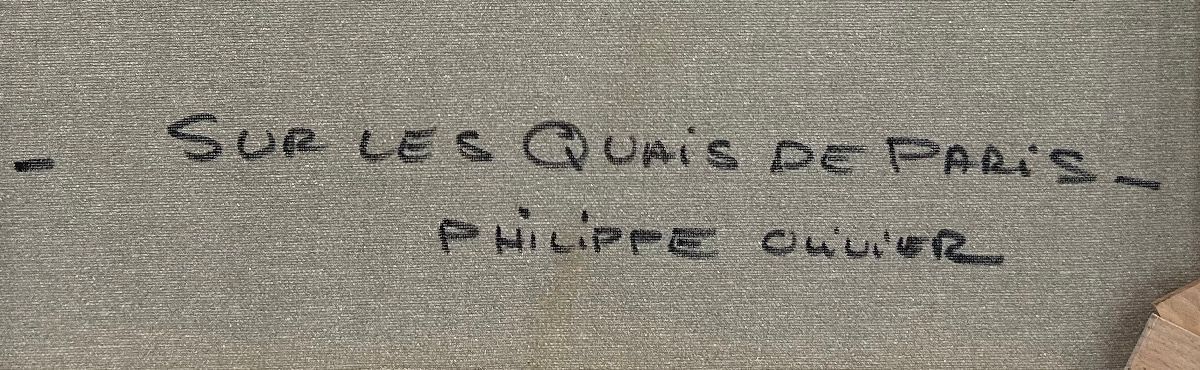 - SUR LES QUAiS DE PARiS -
PHiLiPPE OLiViER